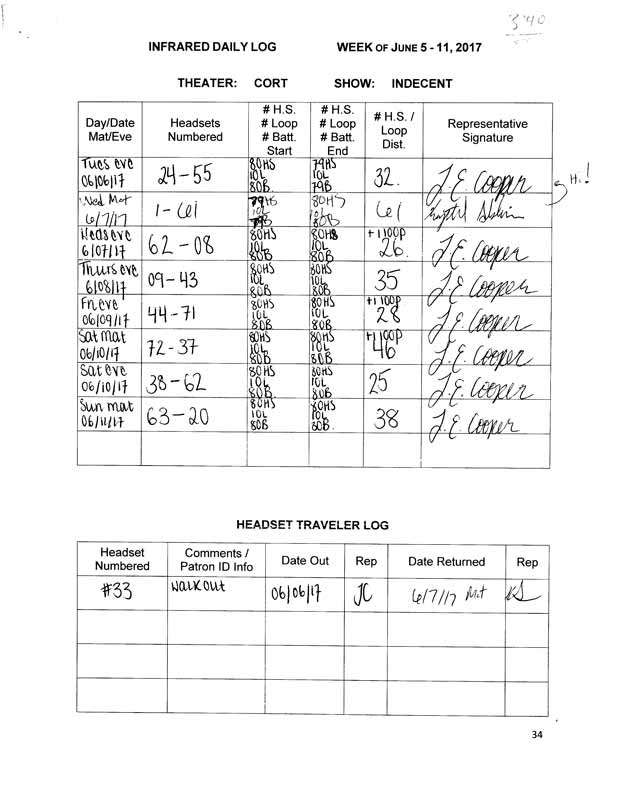 340
INFRARED DAILY LOG WEEK OF JUNE 5 - 11, 2017
THEATER: CORT SHOW: INDECENT
Day/Date Mat/Eve Headsets Numbered # H.S. # Loop # Batt. Start # H.S. # Loop # Batt. End # H.S. / Loop Dist. Representative Signature
Tues eve 06/06/17 24-55 80HS 10L 80B 79HS 10L 79B 32. J.E. Cooper Hi!
Wed Mat 6/7/17 1-61 79HS 10L 79B 80HS 10L 80B 61
Weds eve 6/07/17 62-08 80HS 10L 80B 80HS 10L 80B +1 loop 26. J.E. Cooper
Thurs eve 6/08/17 09-43 80HS 10L 80B 80HS 10L 80B 35 J.E. Cooper
Fri eve 06/09/17 44-71 80HS 10L 80B 80HS 10L 80B +1 loop 28 J.E. Cooper
Sat mat 06/10/17 72-37 80HS 10L 80B 80HS 10L 80B +1 loop 46 J.E. Cooper
Sat eve 06/10/17 38-62 80HS 10L 80B 80HS 10L 80B 25 J.E. Cooper
Sun mat 06/11/17 63-20 80HS 10L 80B 80HS 10L 80B. 38 J.E. Cooper
HEADSET TRAVELER LOG
Headset Numbered Comments / Patron ID Info Date Out Rep Date Returned Rep
#33 walkout 06/06/17 JC 6/7/17 Mat KS
34